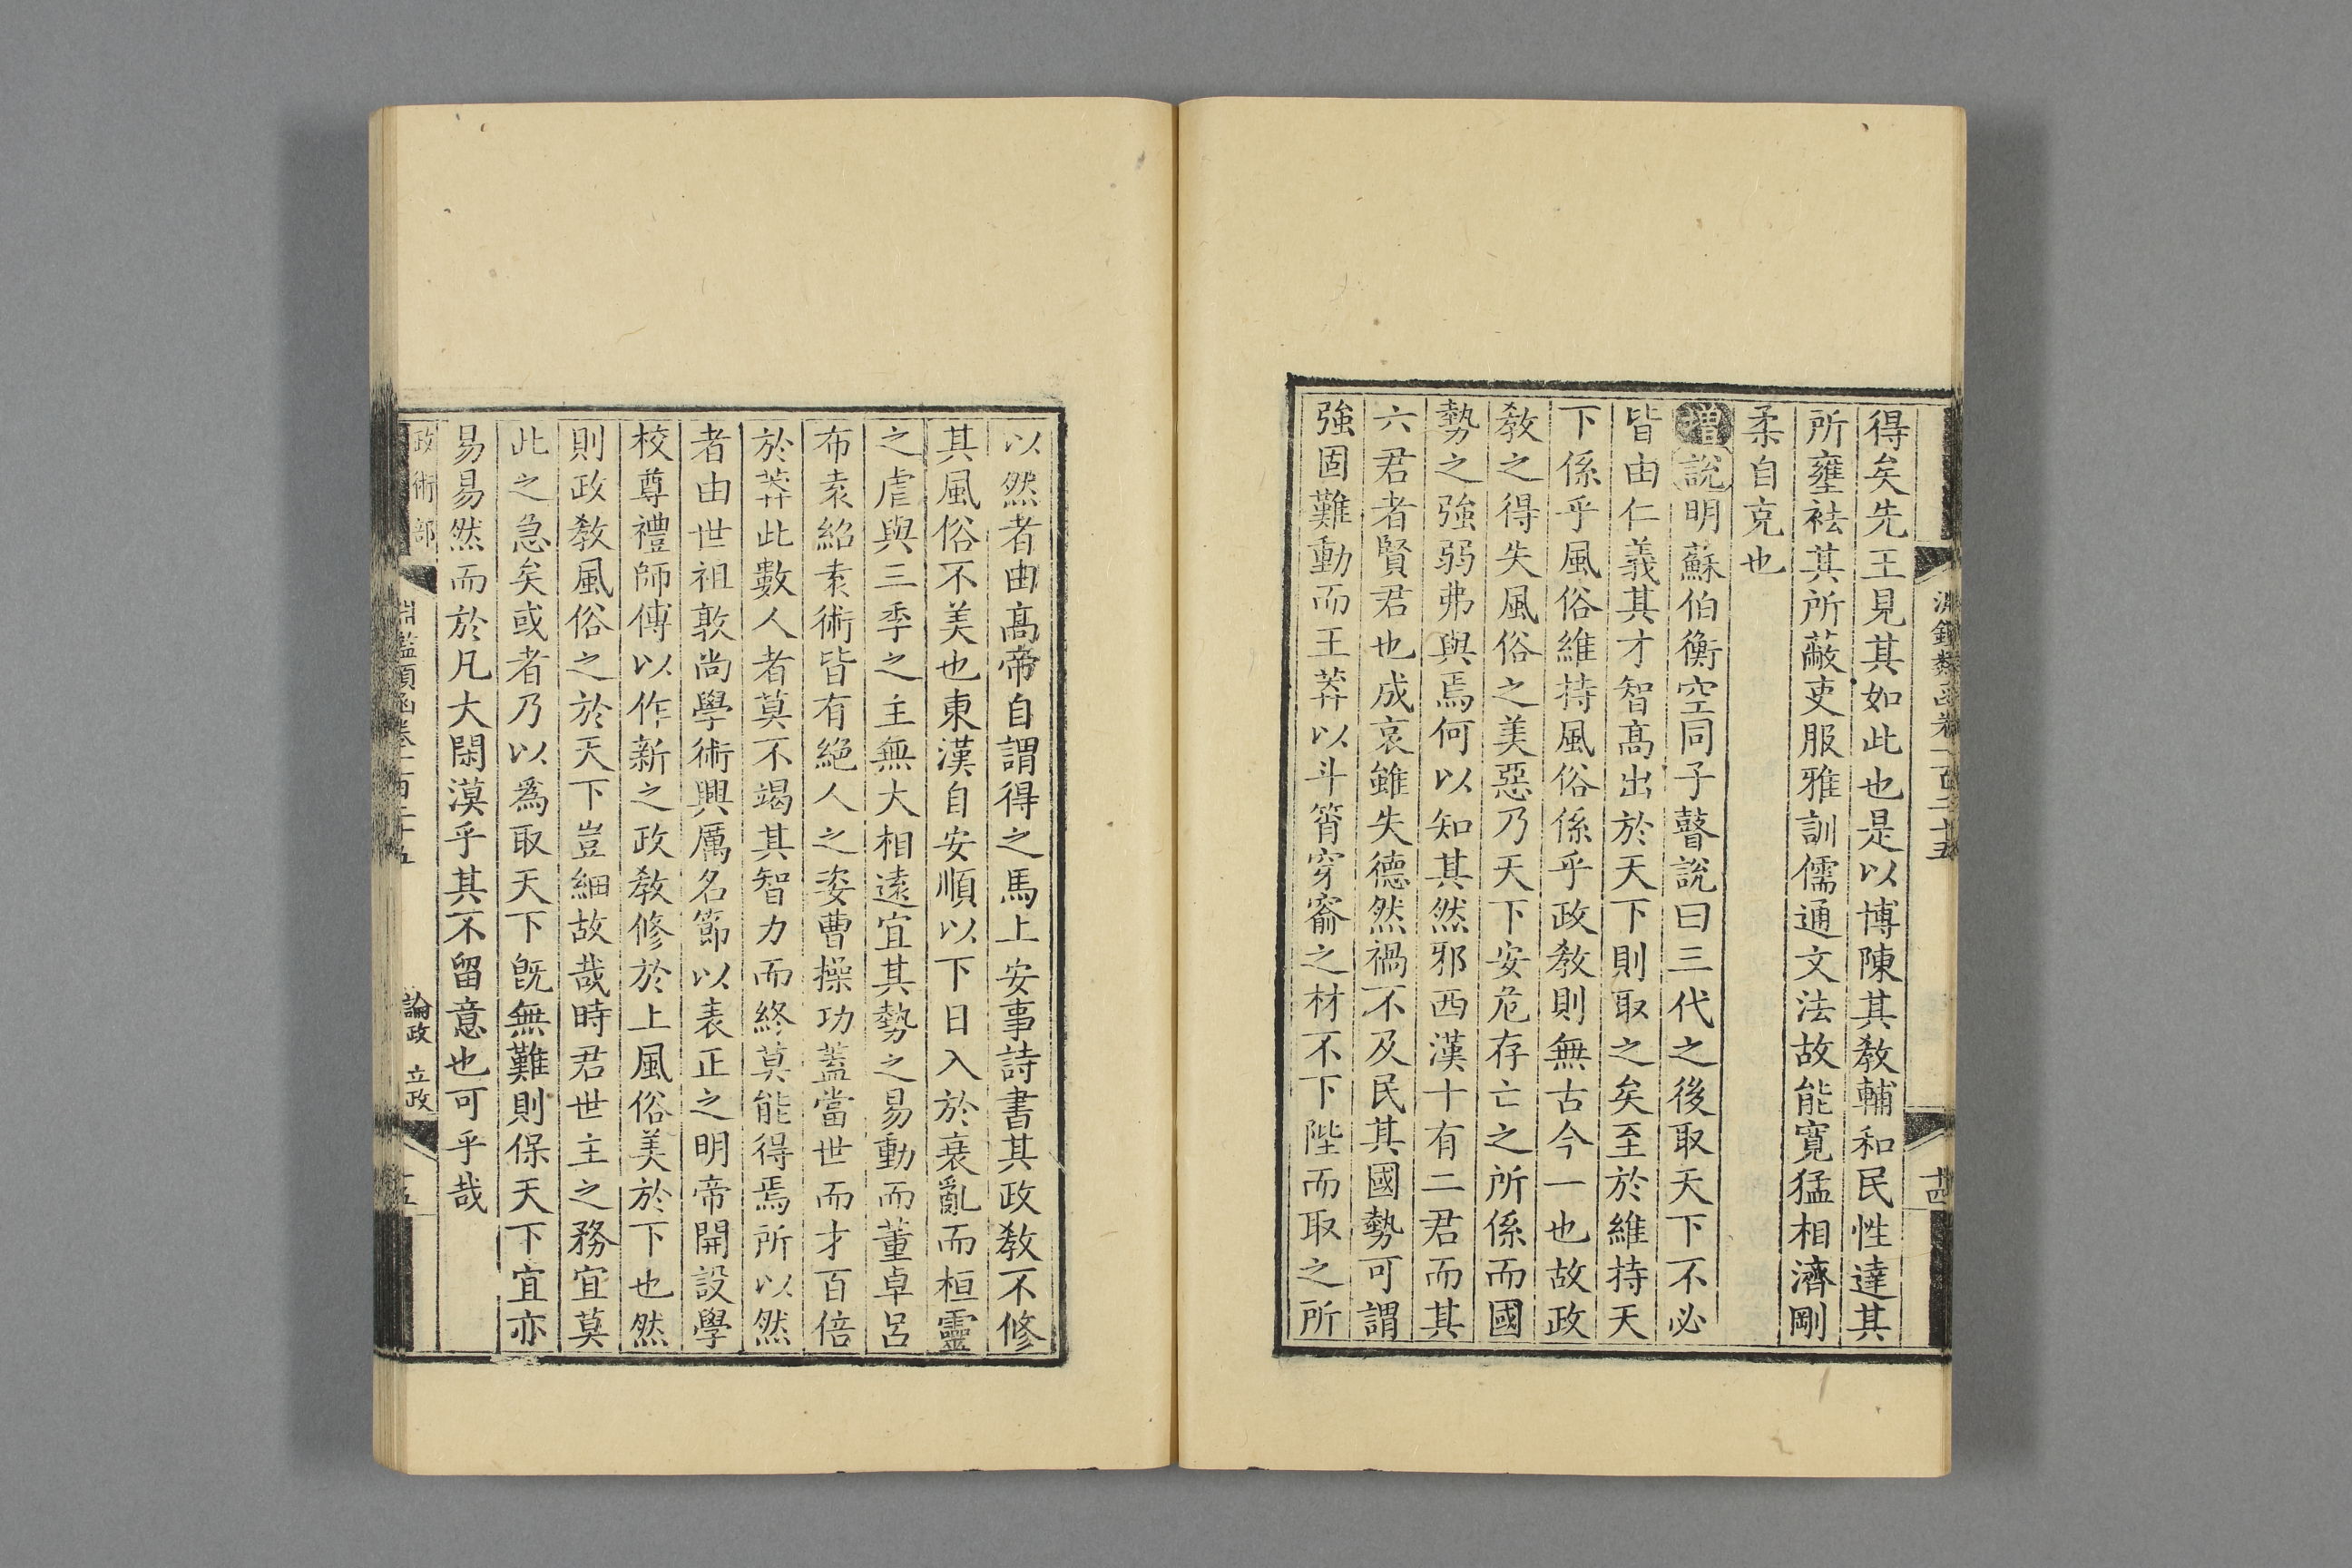 淵鑑類函卷一百二十五
十四
得矣先王見其如此也是以博陳其敎輔和民性達其
所壅袪其所蔽吏服雅訓儒通文法故能寬猛相濟剛
柔自克也
增說明蘇伯衡空同子瞽說曰三代之後取天下不必
皆由仁義其才智高出於天下則取之矣至於維持天
下係乎風俗維持風俗係乎政敎則無古今一也故政
敎之得失風俗之美惡乃天下安危存亡之所係而國
勢之強弱弗與焉何以知其然邪西漢十有二君而其
六君者賢君也成哀雖失德然禍不及民其國勢可謂
強固難動而王莽以斗筲穿窬之材不下陛而取之所
以然者由高帝自謂得之馬上安事詩書其政敎不修
其風俗不美也東漢自安順以下日入於衰亂而桓靈
之虐與三季之主無大相遠宜其勢之易動而董卓呂
布袁紹袁術皆有絕人之姿曹操功蓋當世而才百倍
於莽此數人者莫不竭其智力而終莫能得焉所以然
者由世祖敦尚學術興厲名節以表正之明帝開設學
校尊禮師傅以作新之政敎修於上風俗美於下也然
則政敎風俗之於天下豈細故哉時君世主之務宜莫
此之急矣或者乃以爲取天下旣無難則保天下宜亦
易易然而於凡大閑漠乎其不留意也可乎哉
政術部
淵鑑類函卷一百二十五
論政 立政
十五